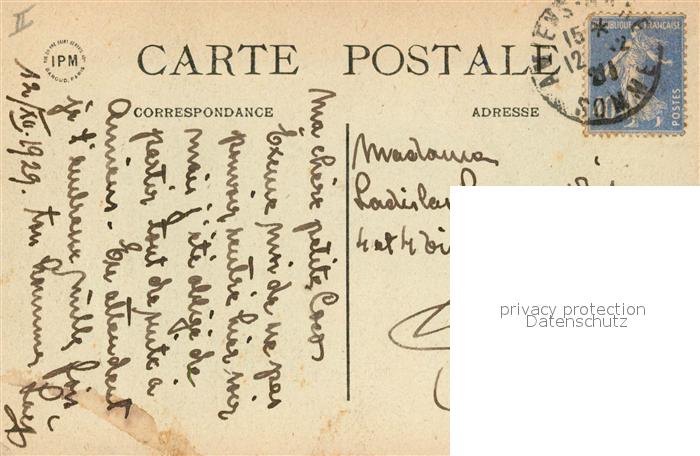 II
CARTE POSTALE
IPM
CORRESPONDANCE
ADRESSE
RÉPUBLIQUE FRANÇAISE
POSTES
AMIENS
15
12
SOMME
Ma chère petite Coco
Excuse moi de ne pas
pouvoir rentrer hier soir
mais j'été obligé de
partir tout de suite à
Amiens. En attendant
je t'embrasse mille fois
12/XII.1929. Ton homme
Madame
Ladislas
4 et 4 bis
privacy protection
Datenschutz